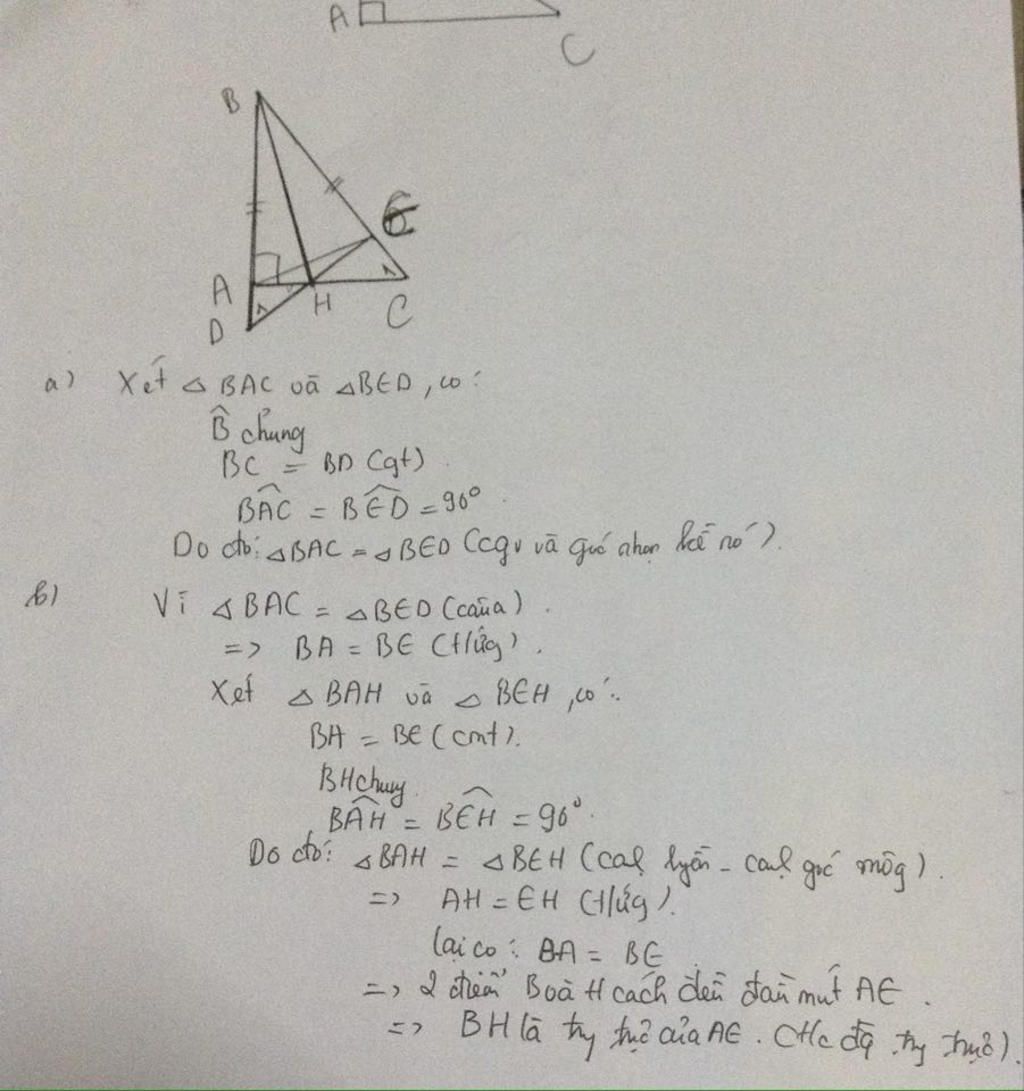 A
C
B
E
A
H
C
D
a) Xét △ BAC và △BED, có:
B̂ chung
BC = BD (gt).
BAC = BED = 90°.
Do đó: △BAC = △BED (cgv và góc nhọn kề nó).
b) Vì △BAC = △BED (câu a).
=> BA = BE (t/ứg).
Xét △ BAH và △ BEH, có:
BA = BE (cmt).
BH chung
BAH = BEH = 90°.
Do đó: △BAH = △BEH (cạh hyền - cạnh góc môg).
=> AH = EH (t/ứg).
lại có: BA = BE
=> 2 điểm B và H cách đều đầu mút AE.
=> BH là trự của AE. (t/c đg trực).